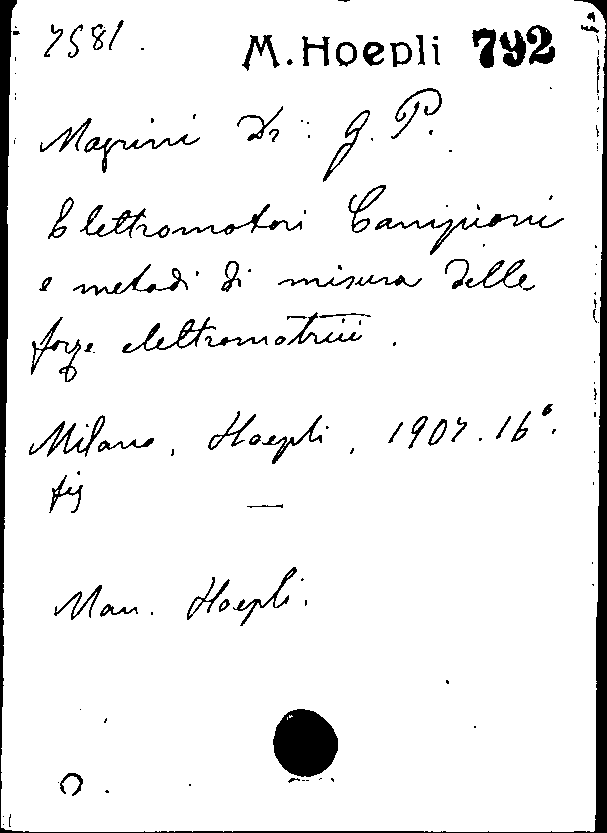 7581. M. Hoepli 792
Magrini Dr. G. P.
Elettromotori Campioni
e metodi di misura delle
forze elettromotrici.
Milano, Hoepli, 1907. 16°.
fig —
Man. Hoepli.